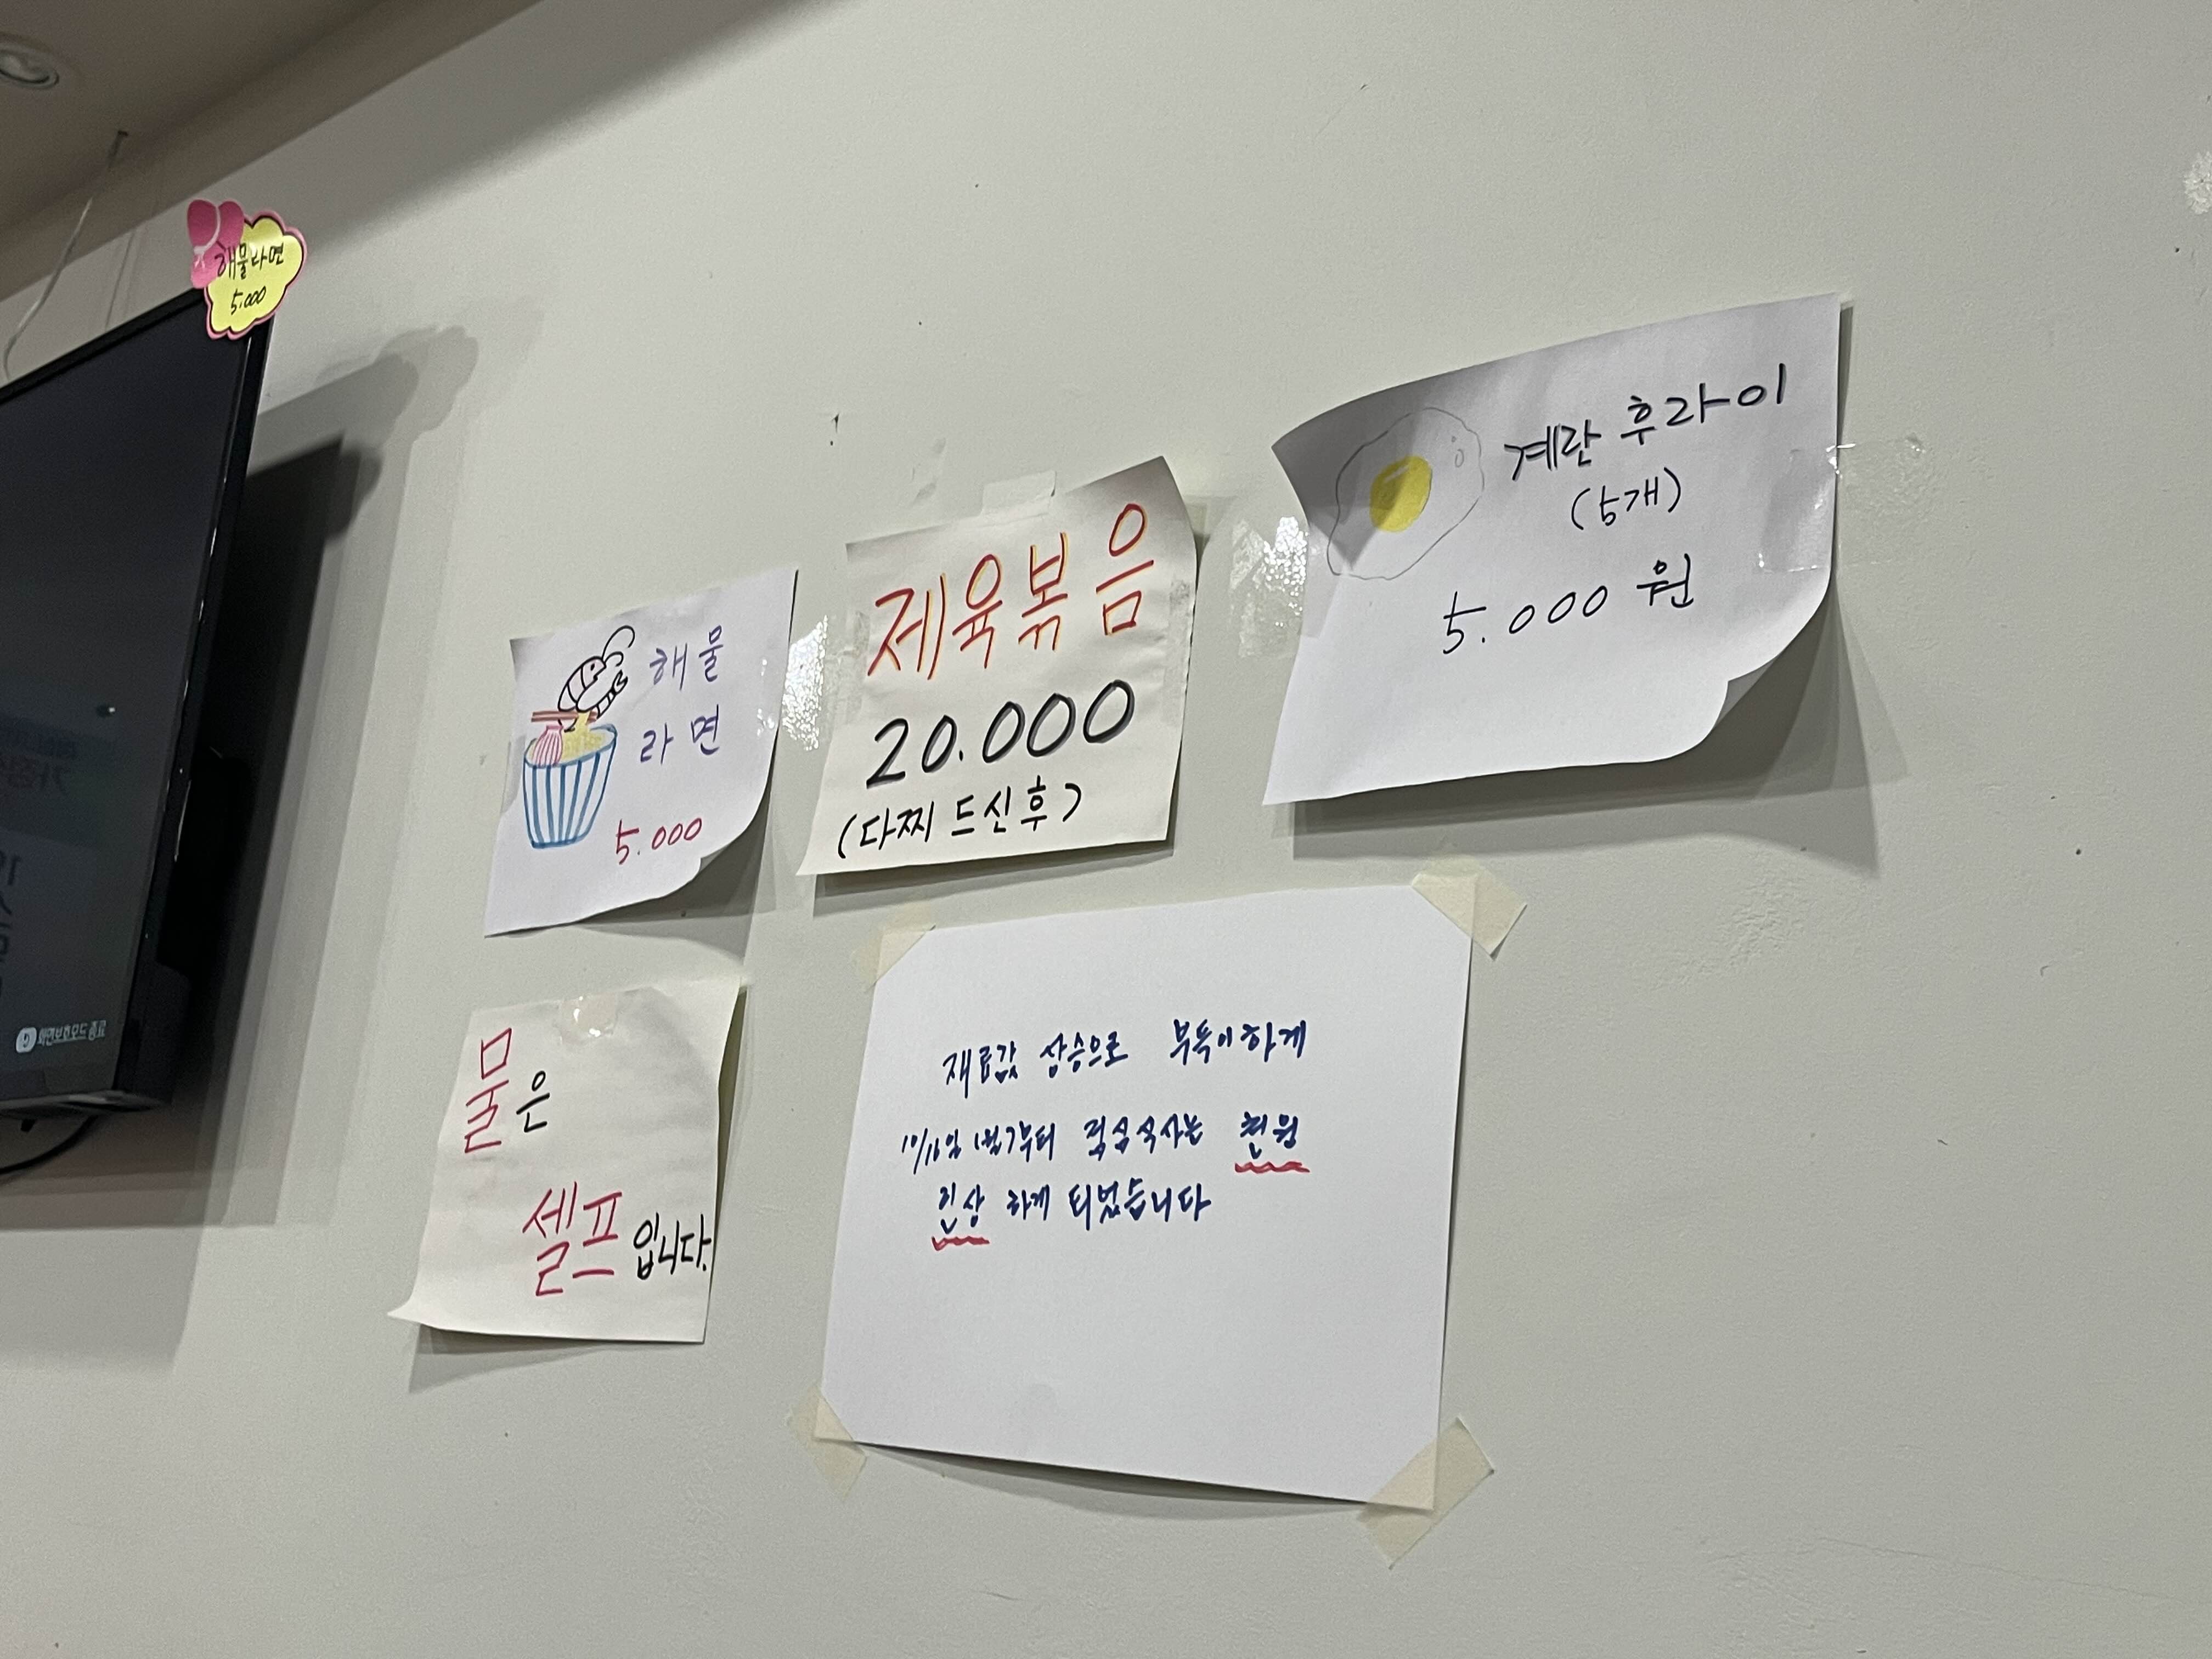 해물라면
5.000
해물
라면
5.000
제육볶음
20.000
(다찌 드신후)
계란 후라이
(5개)
5.000 원
물은
셀프입니다.
재료값 상승으로 부득이하게
10/16일 (월)부터 점심식사는 천원
인상 하게 되었습니다
화면보호모드 종료